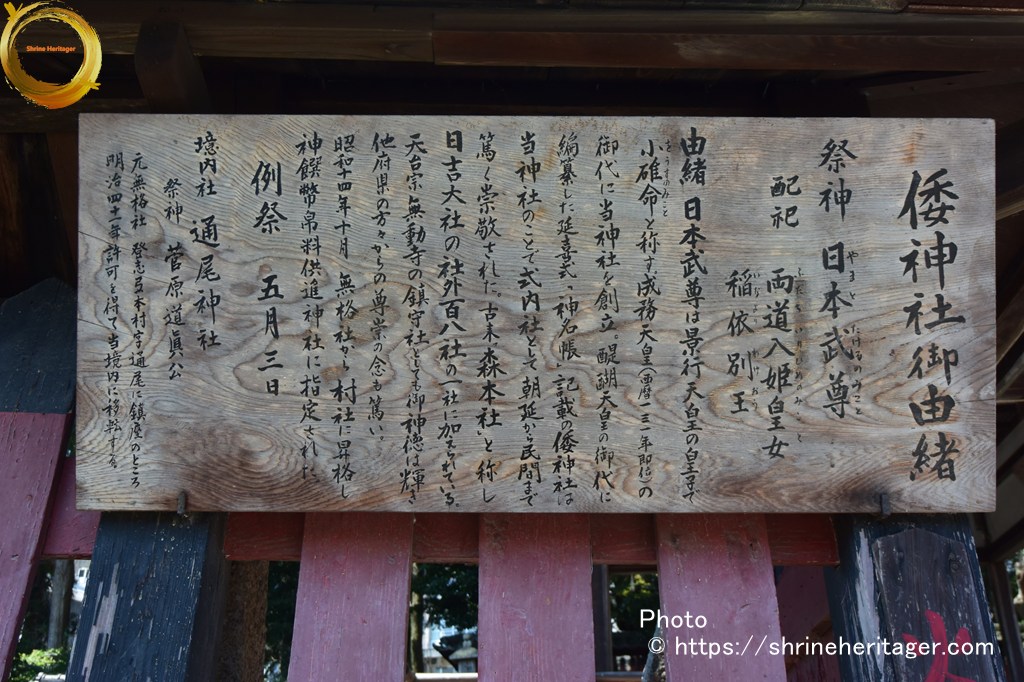 倭神社御由緒
祭神 日本武尊
やまと たけるのみこと
配祀 両道入姫皇女
稲依別王
由緒 日本武尊は景行天皇の皇子で
小碓命と称す成務天皇(西暦一三一年即位)の
御代に当神社を創立。醍醐天皇の御代に
編纂した延喜式「神名帳」記載の倭神社は
当神社のことで式内社として朝廷から民間まで
篤く崇敬された。古来「森本社」と称し
日吉大社の社外百八社の一社に加えられている。
天台宗無動寺の鎮守社としても御神徳は輝き
他府県の方々からの尊崇の念も篤い。
昭和十四年十月 無格社から村社に昇格し
神饌幣帛料供進神社に指定された
例祭 五月三日
境内社 通尾神社
祭神 菅原道眞公
元無格社 登志弖本村字通尾に鎮座のところ
明治四十一年許可を得て当境内に移転する。
Shrine Heritager
Photo
© https://shrineheritager.com